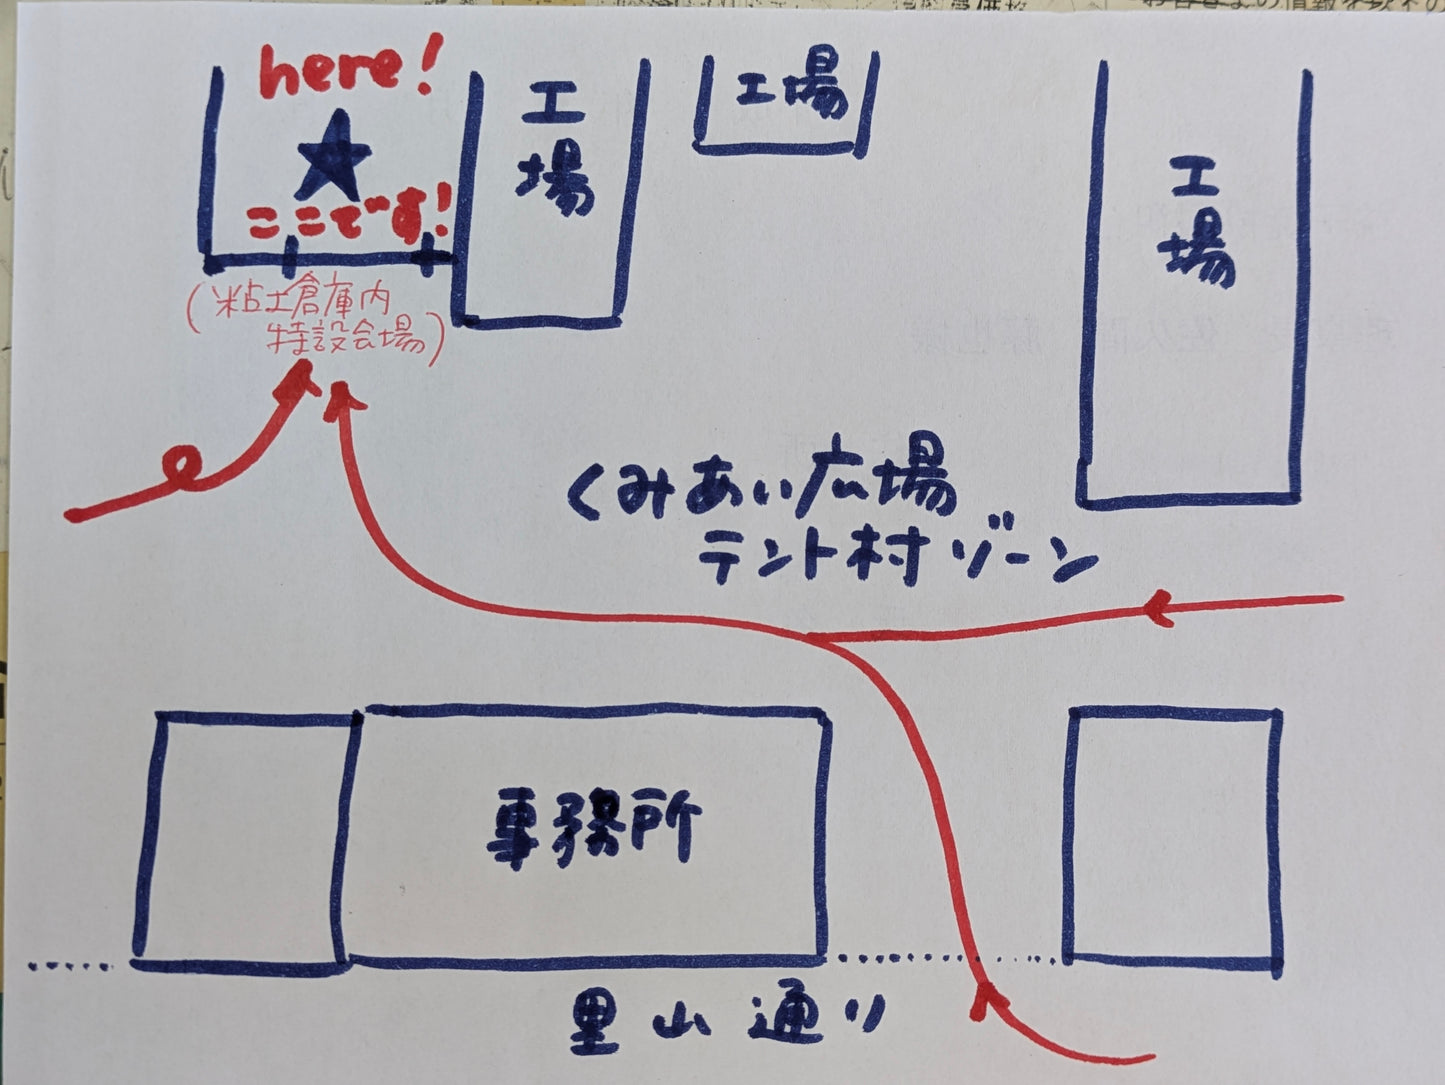 here!
ここです!
(粘土倉庫内
特設会場)
工場
工場
工場
くみあい広場
テント村ゾーン
事務所
里山通り